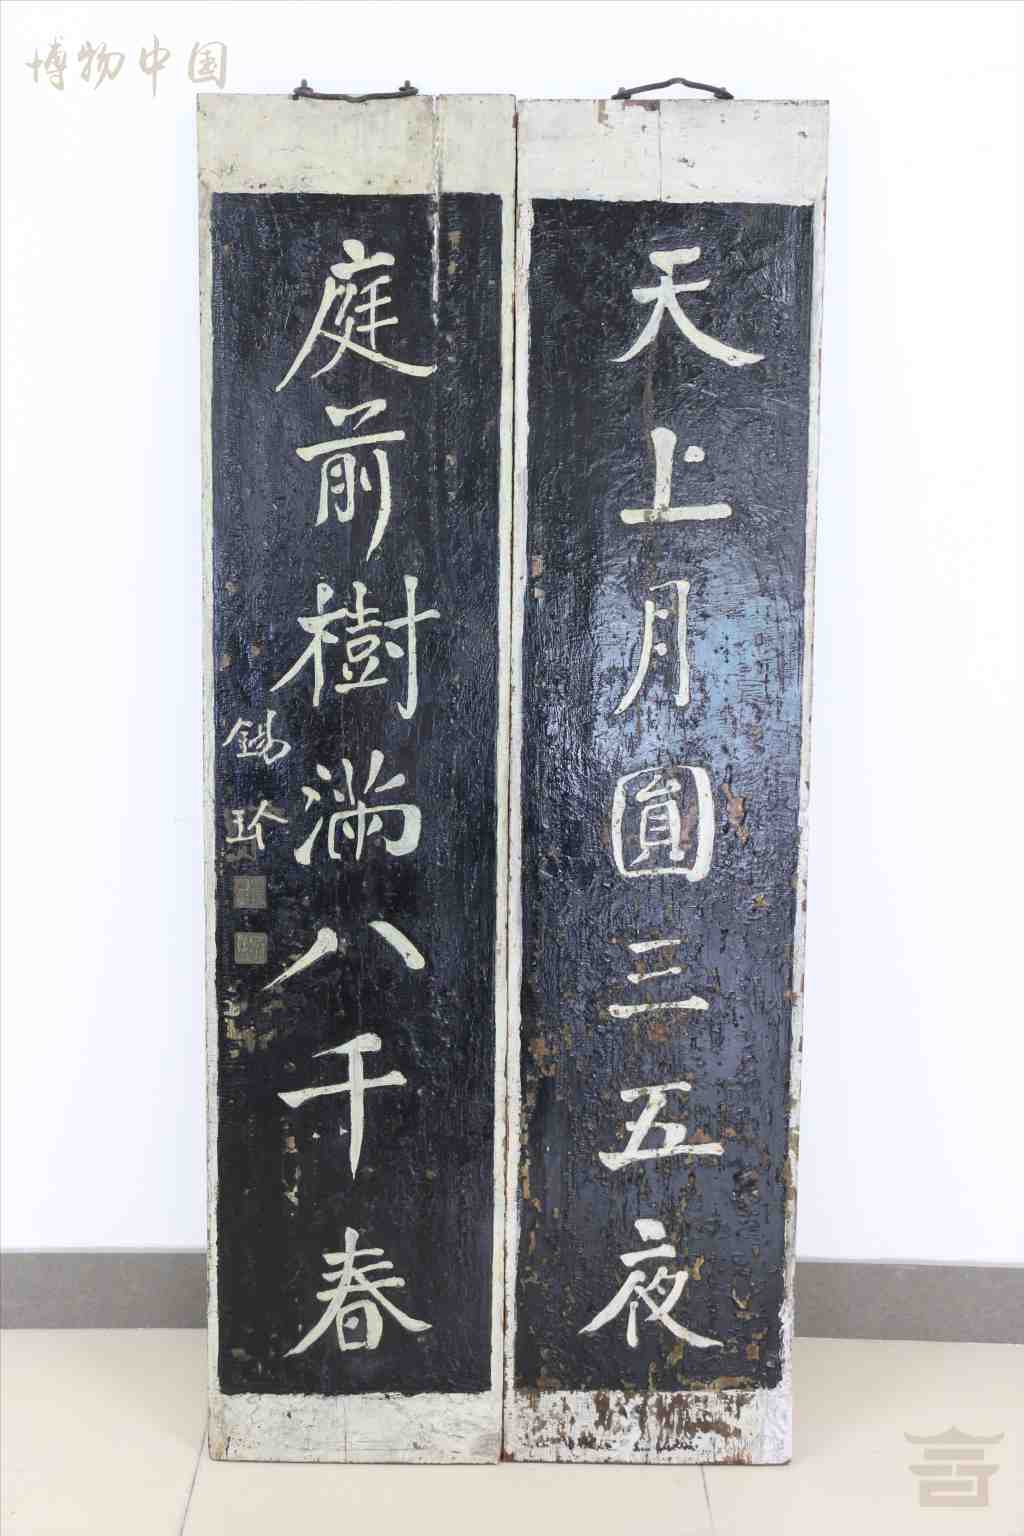 博物中国
天上月圓三五夜
庭前樹滿八千春
錫珍